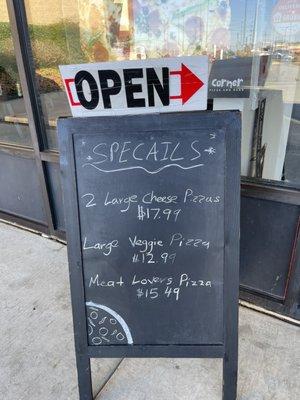 OPEN
Corner
*SPECAILS*
2 Large Cheese Pizzas
$17.99
Large Veggie Pizza
$12.99
Meat Lovers Pizza
$15.49